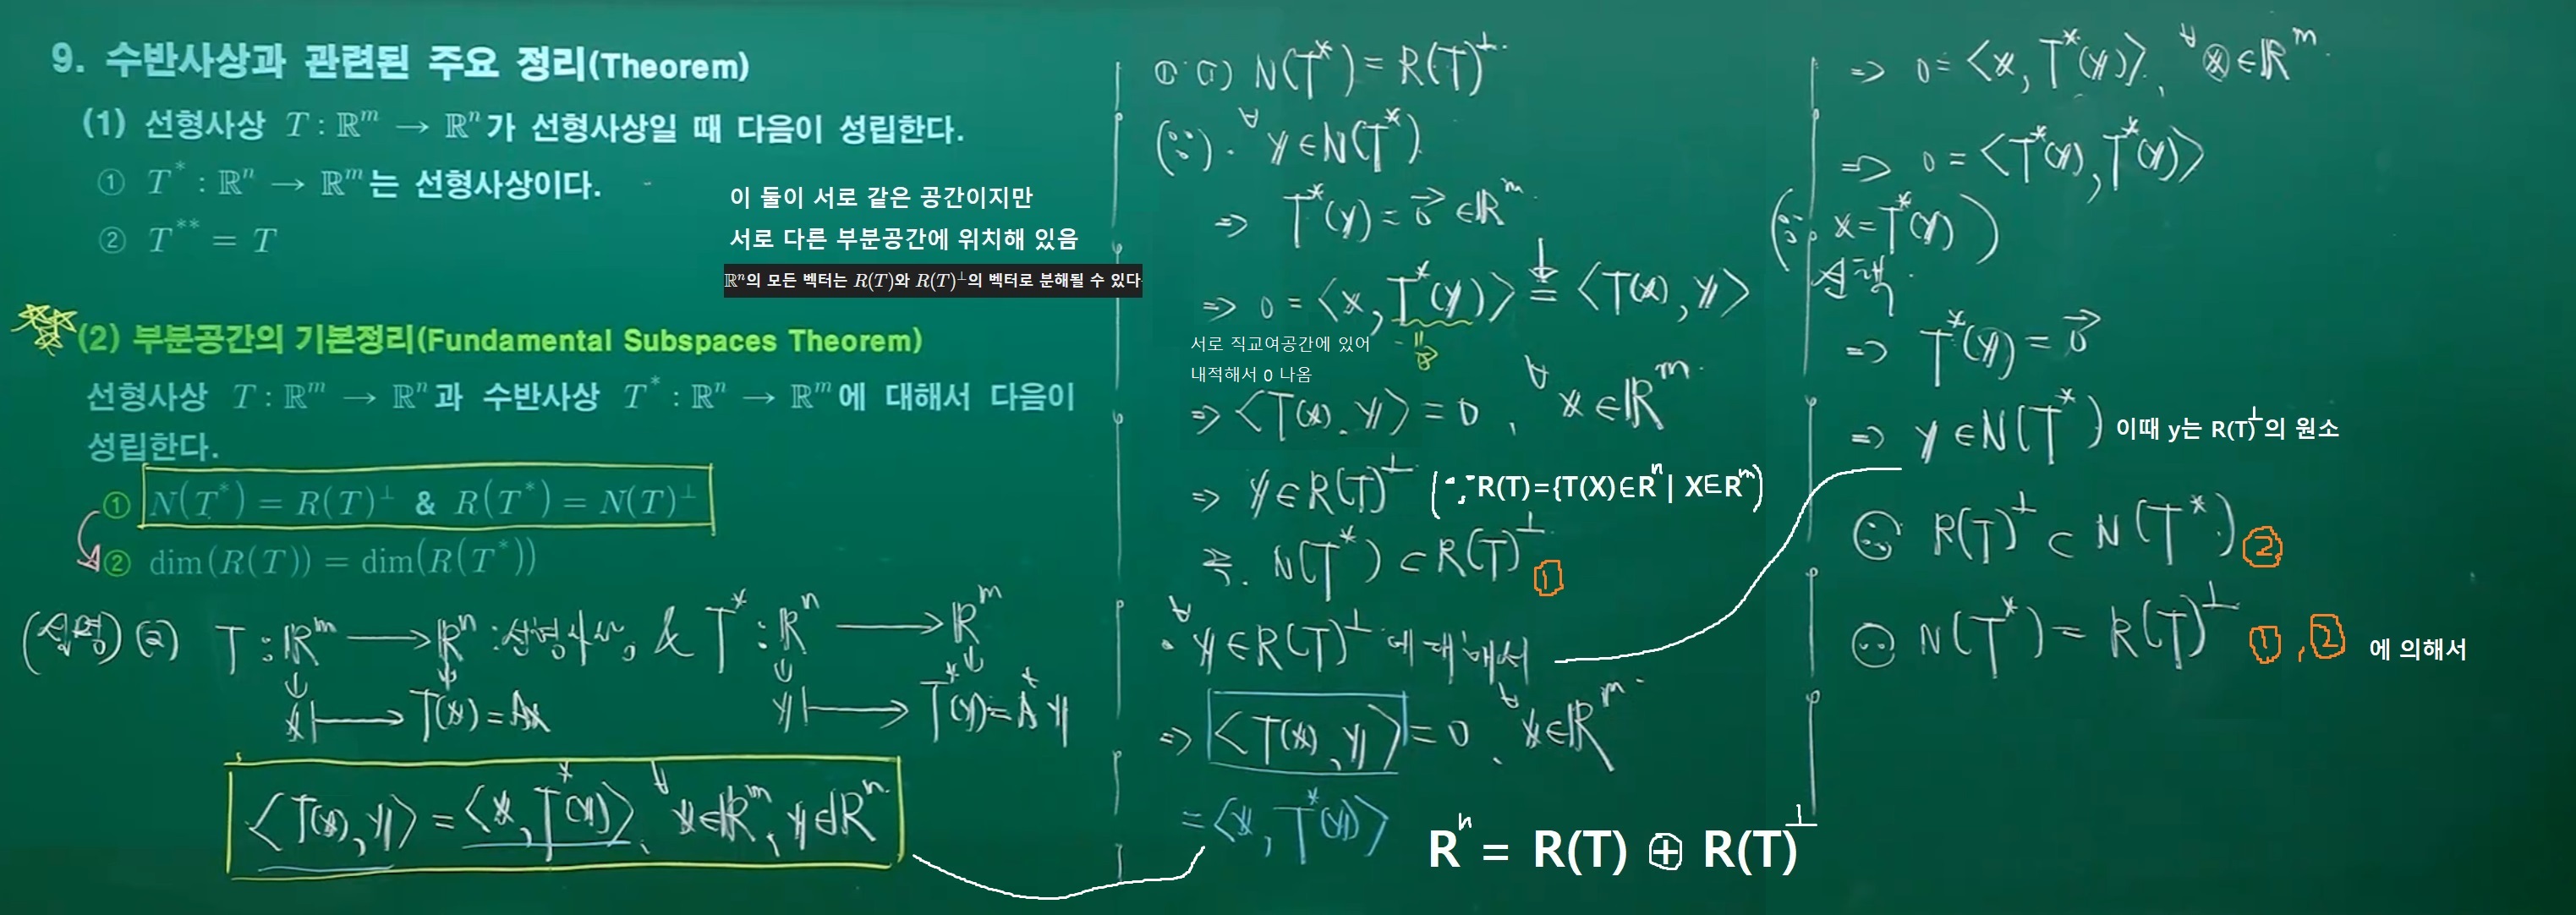 9. 수반사상과 관련된 주요 정리(Theorem)
(1) 선형사상 T : ℝᵐ → ℝⁿ가 선형사상일 때 다음이 성립한다.
① T* : ℝⁿ → ℝᵐ는 선형사상이다.
② T** = T
이 둘이 서로 같은 공간이지만
서로 다른 부분공간에 위치해 있음
ℝⁿ의 모든 벡터는 R(T)와 R(T)^⊥의 벡터로 분해될 수 있다
(2) 부분공간의 기본정리(Fundamental Subspaces Theorem)
선형사상 T : ℝᵐ → ℝⁿ과 수반사상 T* : ℝⁿ → ℝᵐ에 대해서 다음이
성립한다.
① N(T*) = R(T)^⊥ & R(T*) = N(T)^⊥
② dim(R(T)) = dim(R(T*))
(설명) (2) T : ℝᵐ → ℝⁿ : 선형사상, & T* : ℝⁿ → ℝᵐ
x ↦ T(x) = Ax y ↦ T*(y) = A*y
<T(x), y> = <x, T*(y)>, ∀x∈ℝᵐ, y∈ℝⁿ
① (i) N(T*) = R(T)^⊥
(∵) · ∀y∈N(T*)
⇒ T*(y) = 0⃗ ∈ℝᵐ
⇒ 0 = <x, T*(y)> = <T(x), y>
서로 직교여공간에 있어
내적해서 0 나옴
⇒ <T(x), y> = 0, ∀x∈ℝᵐ
⇒ y∈R(T)^⊥ (∵R(T)={T(X)∈Rⁿ| X∈Rᵐ)
즉. N(T*) ⊂ R(T)^⊥ ①
· ∀y∈R(T)^⊥ 에 대해서
⇒ <T(x), y> = 0, ∀x∈ℝᵐ
= <x, T*(y)>
Rⁿ = R(T) ⊕ R(T)^⊥
⇒ 0 = <x, T*(y)>, ∀x∈ℝᵐ
⇒ 0 = <T*(y), T*(y)>
(∵ x = T*(y))
선택.
⇒ T*(y) = 0⃗
⇒ y∈N(T*) 이때 y는 R(T)^⊥의 원소
∴ R(T)^⊥ ⊂ N(T*) ②
∴ N(T*) = R(T)^⊥ ①, ② 에 의해서